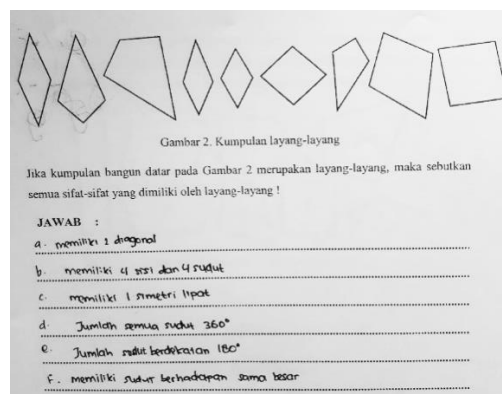 Gambar 2. Kumpulan layang-layang
Jika kumpulan bangun datar pada Gambar 2 merupakan layang-layang, maka sebutkan
semua sifat-sifat yang dimiliki oleh layang-layang !
JAWAB :
a. memiliki 1 diagonal
b. memiliki 4 sisi dan 4 sudut
c. memiliki 1 simetri lipat
d. Jumlah semua sudut 360°
e. Jumlah sudut berdekatan 180°
f. memiliki sudut berhadapan sama besar